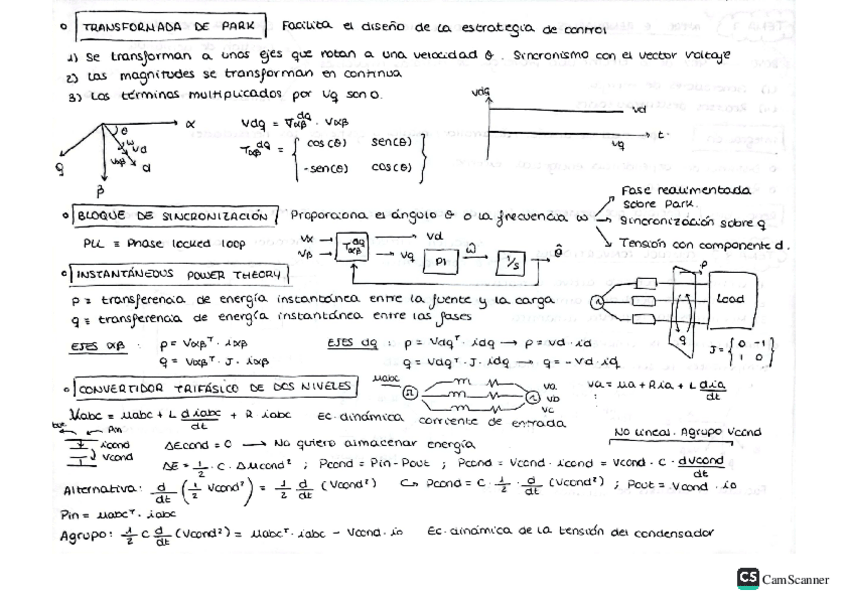 o TRANSFORMADA DE PARK Facilita el diseño de la estrategia de control
1) Se transforman a unos ejes que rotan a una velocidad θ. Sincronismo con el vector voltaje
2) Las magnitudes se transforman en continua
3) Los términos multiplicados por Vq son 0.
Vdq
Vd
t
Vq
α
θ
ω
Vd
Vαβ
d
q
β
Vdq = Tαβ^dq · Vαβ
Tαβ^dq = { cos(θ) sen(θ)
-sen(θ) cos(θ) }
o BLOQUE DE SINCRONIZACIÓN Proporciona el ángulo θ o la frecuencia ω
Fase realimentada sobre Park.
Sincronización sobre q
Tensión con componente d.
PLL ≡ Phase locked loop
Vα
Vβ
Tαβ^dq
Vd
Vq
PI
ω̂
1/s
θ̂
o INSTANTÁNEOUS POWER THEORY
p = transferencia de energía instantánea entre la fuente y la carga
q = transferencia de energía instantánea entre las fases
p
Load
q
J = { 0 -1
1 0 }
EJES αβ : p = Vαβᵀ · iαβ
q = Vαβᵀ · J · iαβ
EJES dq : p = Vdqᵀ · idq → p = vd · id
q = Vdqᵀ · J · idq → q = -Vd · iq
o CONVERTIDOR TRIFÁSICO DE DOS NIVELES
μabc
va
vb
vc
va = ua + R ia + L dia/dt
Uabc = uabc + L diabc/dt + R iabc Ec. dinámica corriente de entrada
Pin
icond
Vcond
No lineal. Agrupo Vcond
ΔEcond = 0 → No quiero almacenar energía
ΔE = 1/2 · C · Δucond² ; Pcond = Pin - Pout ; Pcond = Vcond · icond = Vcond · C · dvcond/dt
Alternativa: d/dt (1/2 Vcond²) = 1/2 d/dt (Vcond²) ↳ Pcond = C · 1/2 · d/dt (Vcond²) ; Pout = Vcond · io
Pin = uabcᵀ · iabc
Agrupo: 1/2 C d/dt (Vcond²) = uabcᵀ · iabc - Vcond · io Ec. dinámica de la tensión del condensador
CS CamScanner